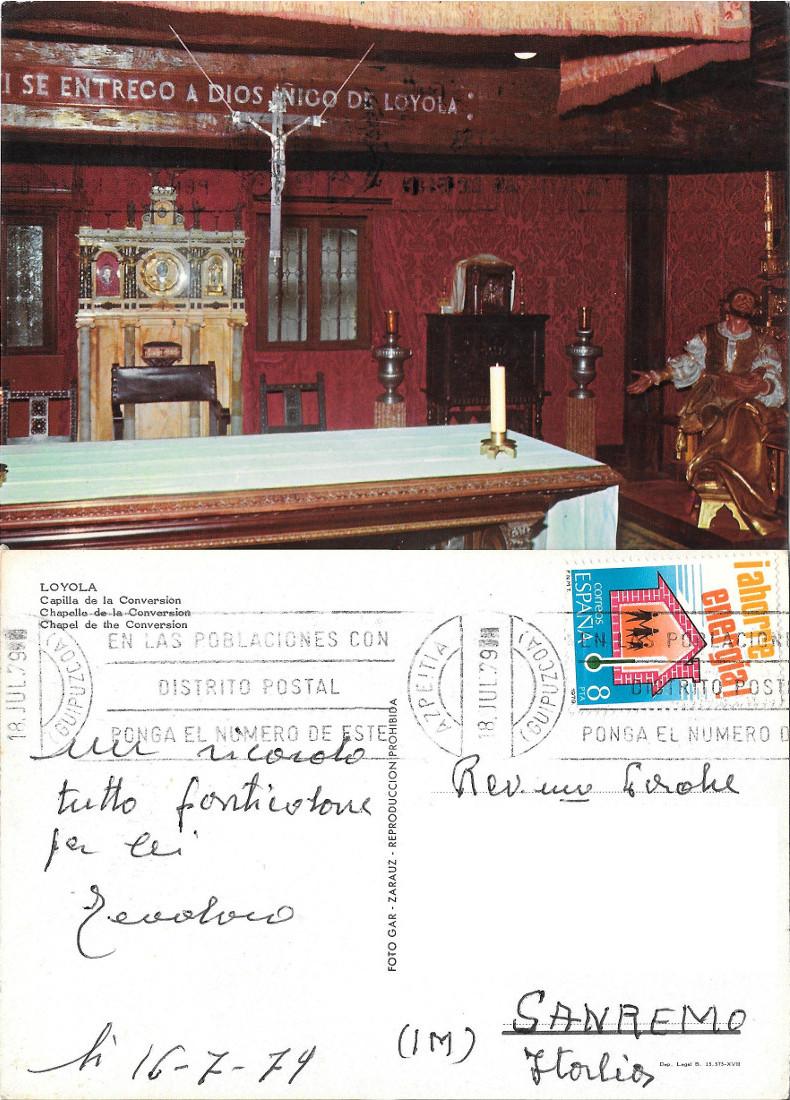 I SE ENTREGO A DIOS IÑIGO DE LOYOLA :
LOYOLA
Capilla de la Conversion
Chapelle de la Conversion
Chapel de the Conversion
18.JUL.79
(GUIPUZCOA)
EN LAS POBLACIONES CON
DISTRITO POSTAL
PONGA EL NUMERO DE ESTE
AZPEITIA
18.JUL.79
(GUIPUZCOA)
EN LAS POBLACIONE
DISTRITO POST
PONGA EL NUMERO D
F.N.M.T.
correos
ESPAÑA
8 PTA
1979
¡ahorre
energía!
un ricordo
tutto particolare
per lei
li 16-7-79
FOTO GAR - ZARAUZ - REPRODUCCION PROHIBIDA
Rev.mo
SANREMO
(IM)
Italia
Dep. Legal B. 15.573-XVIII